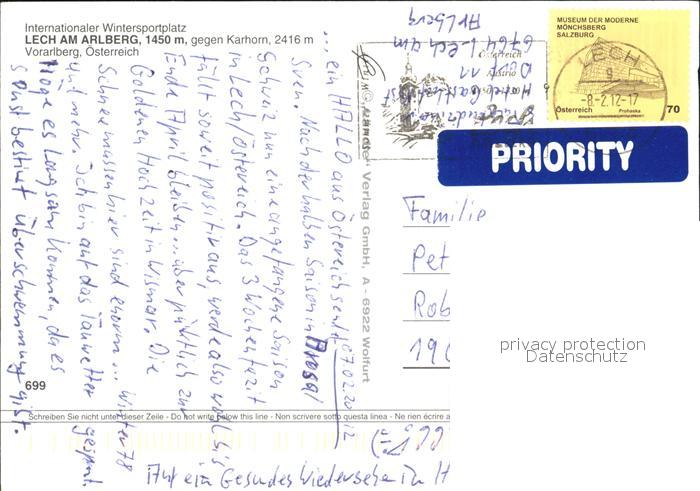 Internationaler Wintersportplatz
LECH AM ARLBERG, 1450 m, gegen Karhorn, 2416 m
Vorarlberg, Österreich
MUSEUM DER MODERNE
MÖNCHSBERG
SALZBURG
LECH
9
-8-2.12-17
Österreich
Prohaska
70
PRIORITY
Österreich
Austria
6764 Lech am
Arlberg
Dorf 11
Verlag GmbH, A - 6922 Wolfurt
07.02.2012
... ein HALLO aus Österreich sendet
Sven. Nach der halben Saison in Arosa/
Schweiz nun eine angefangene Saison
in Lech/Österreich. Das 3 Wochenfazit
fällt soweit positiv aus, werde also wohl bis
Ende April bleiben... über pünktlich zur
Goldenen Hochzeit in Wismar. Die
Schneemassen hier sind enorm... Winter 78
und mehr. Ich bin auf das Tauwetter gespannt.
Möge es langsam kommen, da es
sonst bestimmt Überschwemmung gibt.
Auf ein Gesundes Wiedersehen in H
Familie
Pet
Rob
190
privacy protection
Datenschutz
699
Schreiben Sie nicht unter dieser Zeile - Do not write below this line - Non scrivere sotto questa linea - Ne rien écrire a